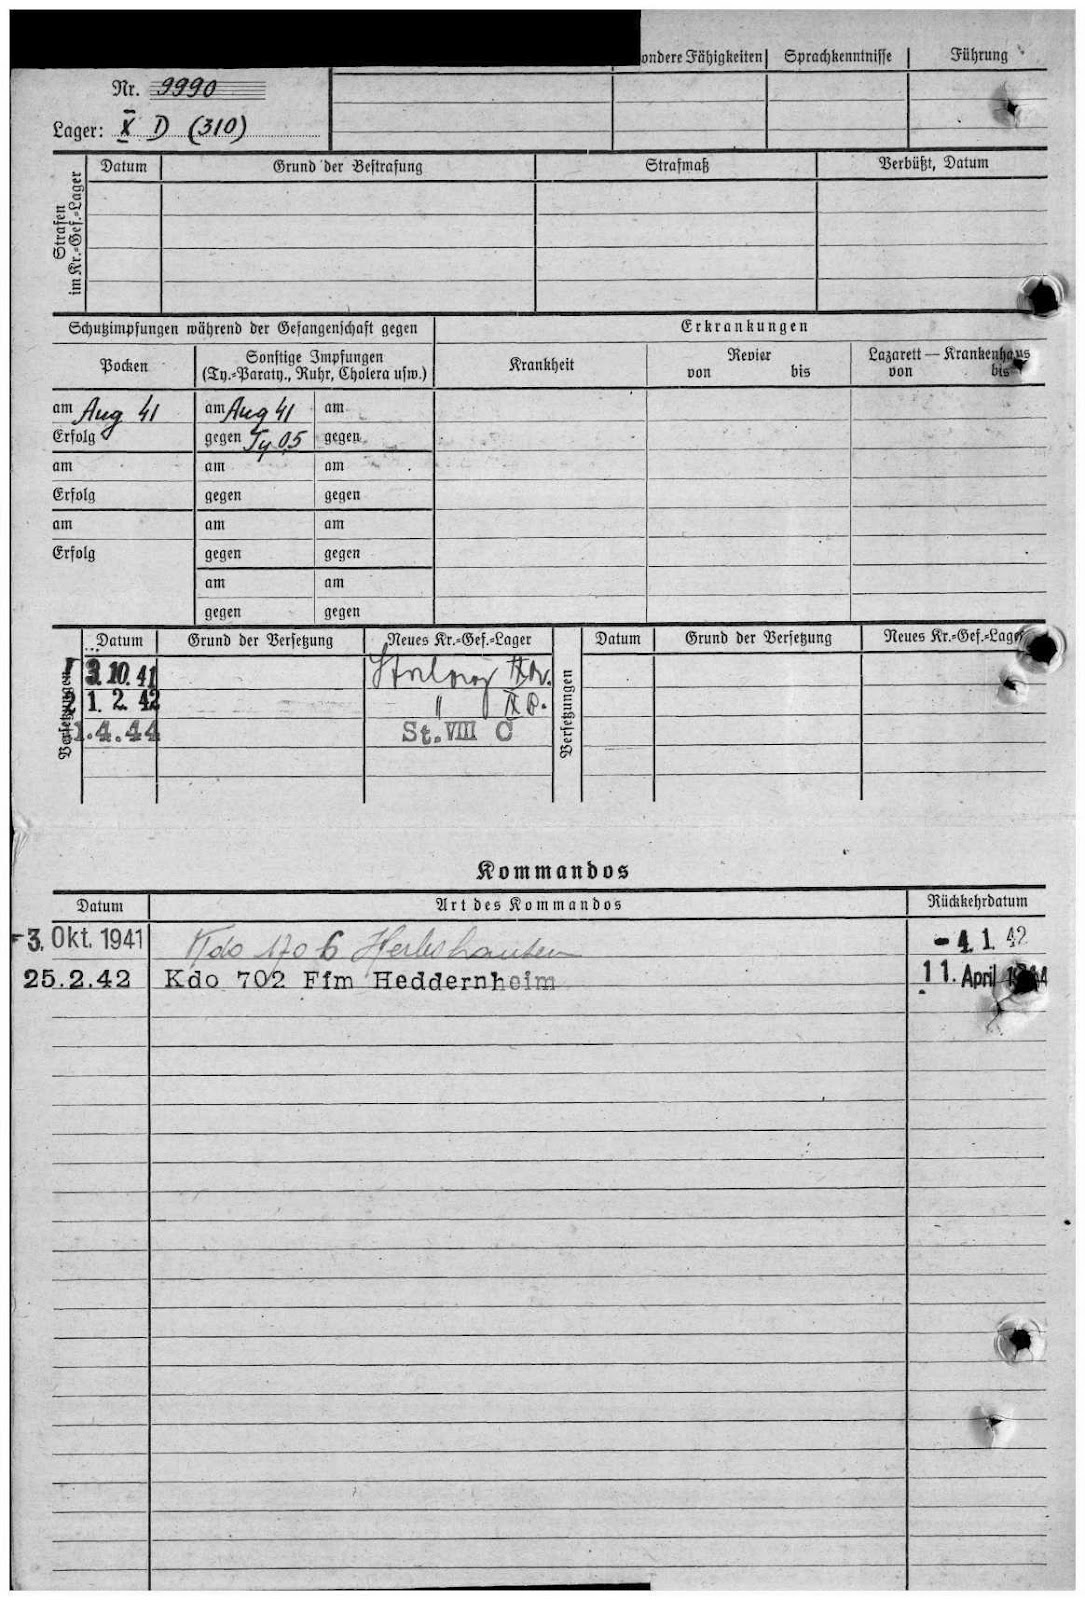 ondere Fähigkeiten Sprachkenntnisse Führung
Nr. 9990
Lager: X D (310)
Strafen im Kr.=Gef.=Lager
Datum Grund der Bestrafung Strafmaß Verbüßt, Datum
Schutzimpfungen während der Gefangenschaft gegen Erkrankungen
Pocken Sonstige Impfungen Krankheit Revier Lazarett — Krankenhaus
(Ty.=Paraty., Ruhr, Cholera usw.) von bis von bis
am Aug 41 am Aug 41 am
Erfolg gegen Ty 0,5 gegen
am am am
Erfolg gegen gegen
am am am
Erfolg gegen gegen
am am
gegen gegen
Versetzungen
Datum Grund der Versetzung Neues Kr.=Gef.=Lager
1 3.10.41 IX
2 1. 2. 42 " IX
1.4.44 St. VIII C
Versetzungen
Datum Grund der Versetzung Neues Kr.=Gef.=Lager
Kommandos
Datum Art des Kommandos Rückkehrdatum
-3. Okt. 1941 Kdo 170 - 4. 1. 42
25.2.42 Kdo 702 Ffm Heddernheim 11. April 1944